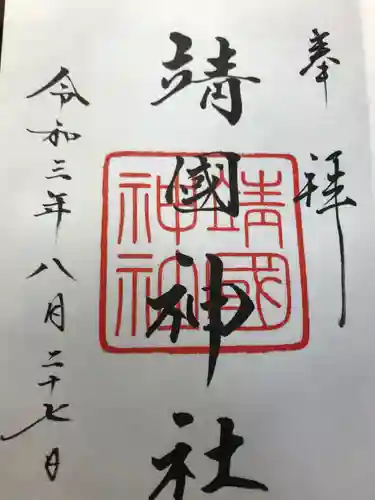 奉拝
靖國神社
靖國
神社
令和三年八月二十七日